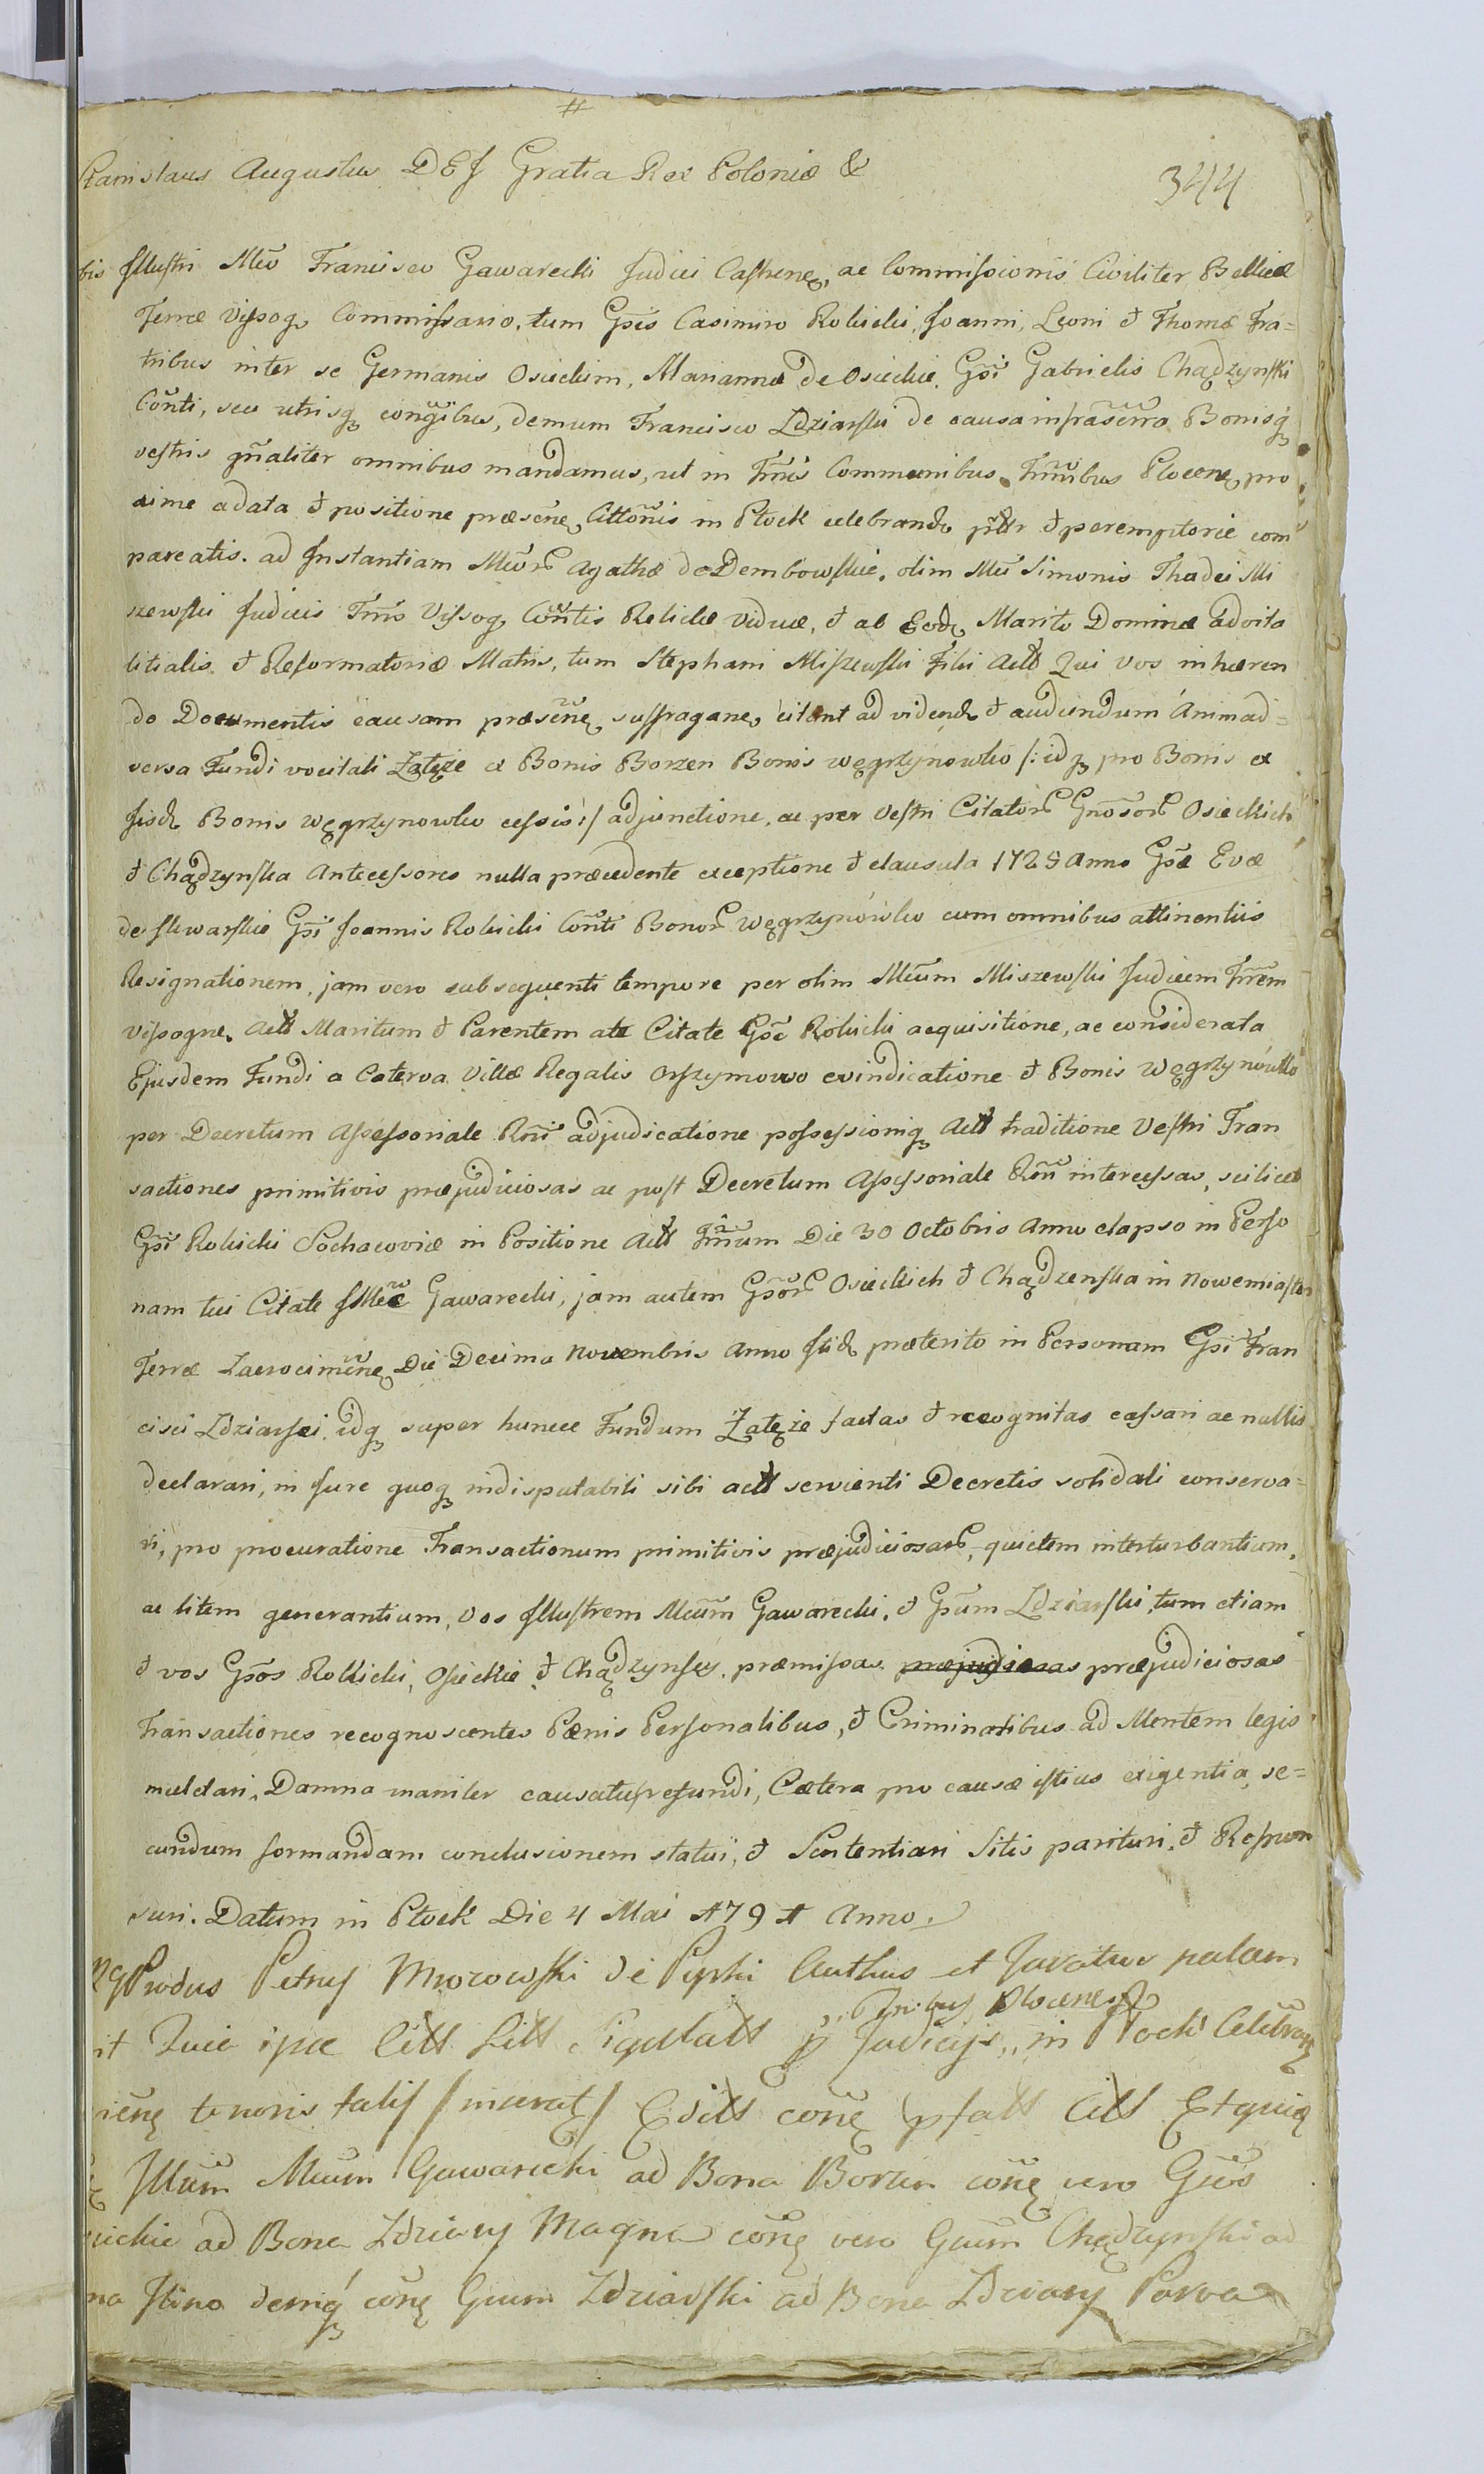 #
Stanislaus Augustus DEJ Gratia Rex Poloniæ &
344
bis Jllustri Mco Francisco Gawarecki Judici Castrenę, ac Commissionis Civiliter Bellicæ
Terræ Vissog. Commissario, tum Gsis Casimiro Rolicki, Joanni, Leoni & Thomæ Fra=
tribus inter se Germanis Osieckim, Mariannæ de Osieckie, Gsi Gabrielis Chądzynski
Conti, seu utrisqȝ congibus, demum Francisco Zdziarski de causa infrascrra Bonisqȝ
vestris gnaliter omnibus mandamus, ut in Tmis Communibus Tmibus Plocenę pro
xime a data & positione præsenę Cittonis in Płock celebrand. pltr & peremptorie com
pareatis. ad Jnstantiam Mcor Agathæ de Dembowskie, olim Mci Simonis Thadei Mi
szewski Judicis Tris Vissog. Contis Relictæ viduæ, & ab Eod. Marito Dominæ advita
litialis & Reformatoriæ Matris, tum Stephani Miszewski Filii Actt Qui vos inhæren
do Documentis causam præsenę suffragane, citant ad videnđ & audiendum Animad=
versa Fundi vocitati Zatęże ex Bonis Borzen Bonis węgrzynowko /: idqȝ pro Bonis ex
Jisd. Bonis węgrzynowko cessis :/ adjunctione, ac per Vestri Citator Gnosor Osieckich
& Chądzynska Antecessores nulla præcedente exceptione & clausula 1725 Anno Gsæ Evæ
de Skwarskie Gsi Joannis Rolicki Conti Bonor węgrzynówko cum omnibus attinentiis
Resignationem, jam vero subsequenti tempore per olim Mcum Miszewski Judicem Trrem
Vissogne. Actt Maritum & Parentem ate Citate Gse Rolicki acquisitione, ac considerata
Ejusdem Fundi a Caterva Villæ Regalis Orszymowo evindicatione & Bonis węgrzynówko
per Decretum Assessoriale Rni adjudicatione possessioniqȝ Actt traditione Vestri Tran
sactiones primitivis præjudiciosas ac post Decretum Assessoriale Rni intercessas, scilicet
Gsi Rolicki Sochacoviæ in Positione Actt Tmum Die 30 Octobris Anno elapso in Perso
nam tui Citate JMce Gawarecki, jam autem Gsor Osieckich & Chądzenska in Nowemiasto
Terræ Zacrocimenę Die Decima Novembris Anno Jtid. præterito in Personam Gsi Fran
cisci Zdziarski, idqȝ super huncce Fundum Zatęże factas & recognitas cassari ac nullis
declarari, in Jure quoqȝ indisputabili sibi actt servienti Decretis solidati conserva=
ri, pro procuratione Transactionum primitivis præjudiciosar, quietem interturbantium,
ac litem generantium, Vos Jllustrem Mcum Gawarecki, & Gsum Zdziarski, tum etiam
& vos Gsos Rolicki, Osieckie & Chądzynscy, præmissas præjudiciosas præjudiciosas
Transactiones recognoscentes Pœnis Personalibus, & Criminalibus ad Mentem legis
mulctari, Damna maniler causatu refundi, Cætera pro causæ istius exigentia, se=
cundum formandam conclusionem statui, & Sententiari Sitis parituri, & Respon
suri. Datum in Płock Die 4 Mai 1791 Anno.
Produs Petrus Mrozowski de Pepki Authus et Juratus palam
Tribus Plocenę
it Quia ipse Citt Litt Sigillatt p Judicijs,, in Płock Celebran
tenoris talis / inserat / Edidtt conę psatt Citt Etquia
Jllum Mcum Gawarecki ad Bona Borzen conę vero Gsos
ieckie ad Bona Zdziary Magna conę vero Gsum Chądzynski ad
na Stino demqȝ conę Gsum Zdziarski ad Bona Zdziary Parva